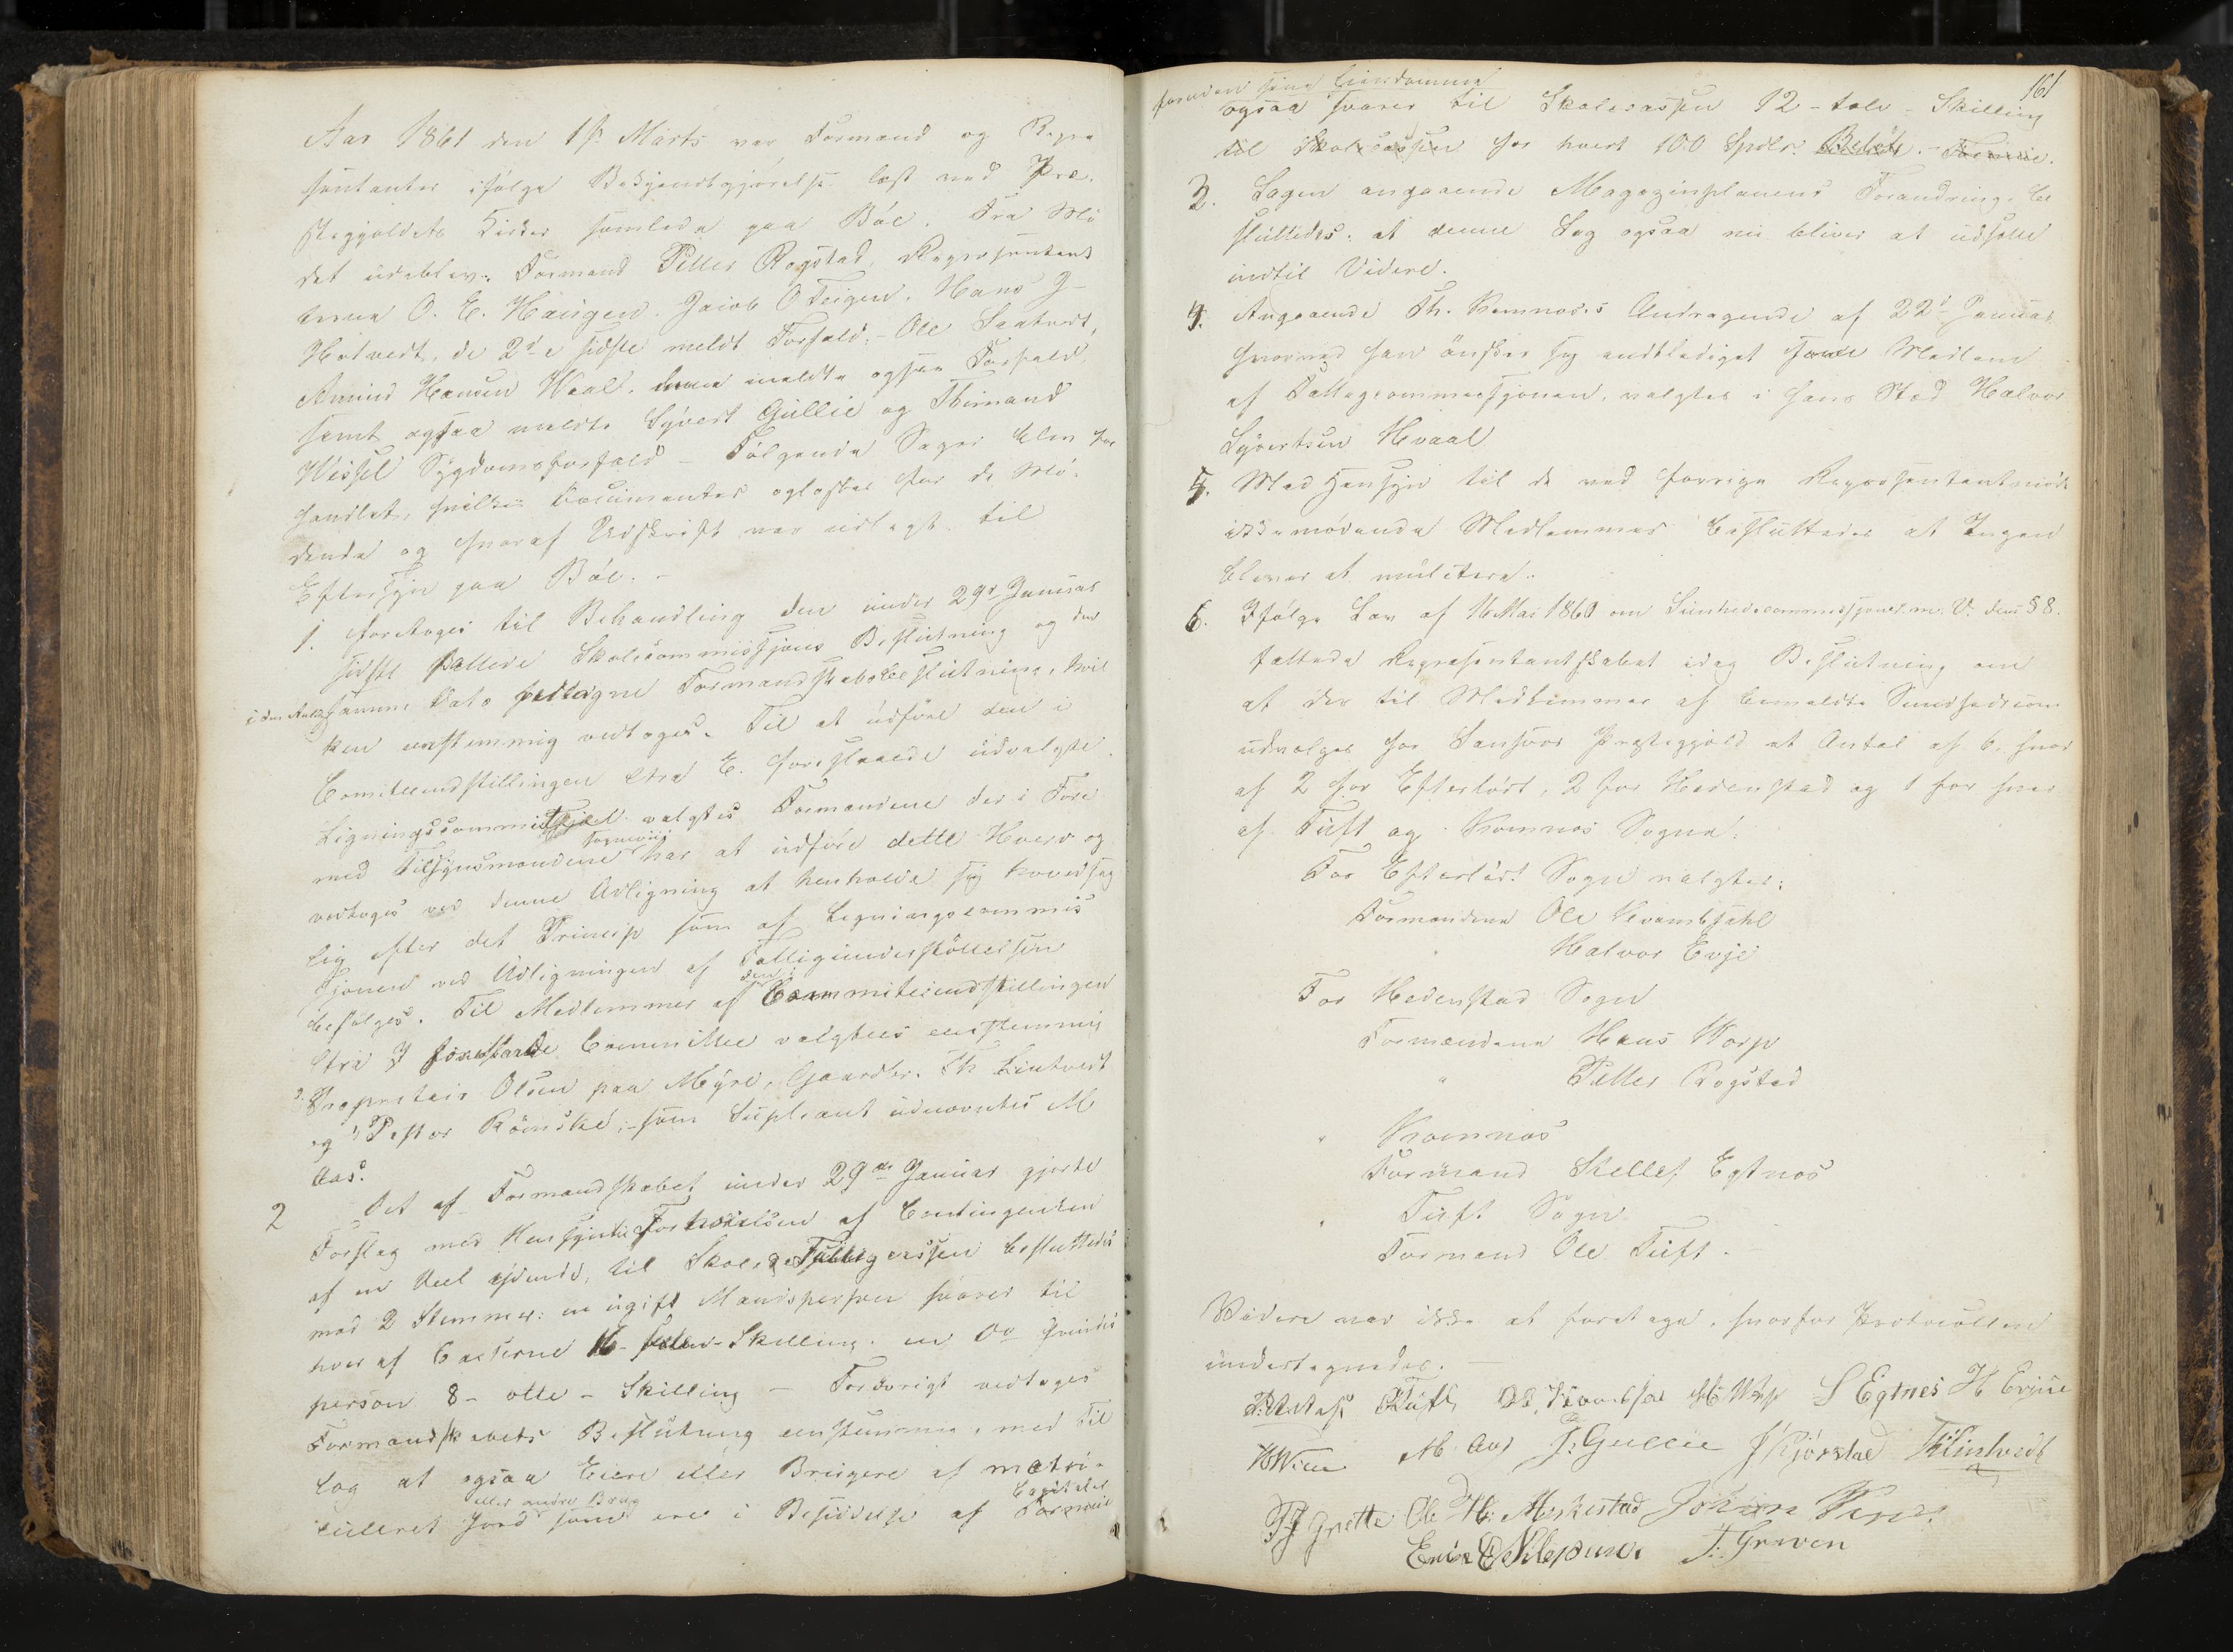 Aar 1861 den 1ste Marts var Formænd og Repræ
sentanter ifølge Bekjendtgjørelse læst ved Præ-
stegjeldets Kirker samlede paa Bøe. Fra Mø
det udeblev: Formand Peller Rogstad, Repræsentant
terne O. E. Haugen. Jacob O Teigen. Hans J
Hotvedt, de 2de sidste meldt Forfald. – Ole Saatvedt,
Amund Hansen Waal. denne meldte ogsaa Forfald
samt ogsaa meldte Syvert Gullie og Thimand
Wissel Sygdomsforfald – Følgende Sager blev for
handlet, hvilkes Documenter oplæstes for de Mø-
dende og hvoraf Udskrift var udlagt til
Eftersyn paa Bøe. –
1. foretoges til Behandling den under 29de Januar
sidste fattede Skolecommissjons Beslutning og den
i den Anledg samme Dato fattegne Formandskabsbeslutning, hvil
ken enstemmig vedtoges. Til at udføre den i
Comiteeindstillingen litra E. foreslaaede udvalgte
Ligningscommission valgtes Formændene der i Fore
ning med Tilsynsmændene har at udføre dette Hverv og
vedtoges ved denne Udligning at henholde sig hovedsag
lig efter det Princip som af Ligningscommis
sjonen ved Udligningen af Fattigunderstøttelsen
befølges. Til Medlemmer af den i Commiteeindstillingen
litra J foreslaaede Committee valgtes enstemmig
Proprietair Olsen paa Myre, Gaardbr. Th Lindtvedt
og Pastor Römcke; – som Supleant udnævntes M
Aas.
2 Det af Formandskabet under 29de Januar gjorte
Forslag med Hensyn til Forhøielsen af Contingenten
af en Deel ejende, til Skole og Fattigcassen besluttedes
mod 2 Stemmer: en ugift Mandsperson svarer til
hver af Casserne 16 – Skilling. en Do Qvindes
person 8 – otte – Skilling – Forøvrigt vedtoges
Formandskabets Beslutning eenstemmig, med Til
læg at ogsaa Eiere eller Brugere af matri-
culeret Jord eller andre Brug som ere i Besiddelse af Capitaler Formue
161
foruden sine Eiendomme
ogsaa svarer til Skolecassen 12 – tolv – Skilling
til Skolecassen for hvert 100 Spdlr. Beløb. – Formue.
3. Sagen angaaende Magazinplanens Forandring. be
sluttedes: at denne Sag ogsaa nu bliver at udsætte
indtil Videre.
4. Angaaende Th. Komnæs's Andragende af 22de Januar
hvorved han ønsker sig entlediget som Medlem
af Fattigcommissjonen, valgtes i hans Sted Halvor
Syvertsen Hvaal
5. Med Hensyn til de ved forrige Repræsentantmøde
ikkemødende Medlemmer besluttedes at Ingen
blever at mulctere.
6. Ifølge Lov af 16 Mai 1860 om Sundhedscommissjoner m. V. dens § 8.
fattede Repræsentantskabet idag Beslutning om
at der til Medlemmer af bemeldte Sundhedscom
udvælges for Sandsvær Præstegjeld et Antal af 6. hvor
af 2 for Efterlødt, 2 for Hedenstad og 1 for hver
af Tuft og Komnæs Sogne:
For Efterlødt Sogn valgtes:
Formændene Ole Kvambjahl
" Halvor Evje
For Hedenstad Sogn
Formændene Hans Worp
" Peller Rogstad
" Komnæs
Formand Stellef Egtnæs
" Tuft Sogn
Formand Ole Tuft.
Videre var ikke at foretage, hvorfor Protocollen
undertegnedes. –
Tuft H Worp S Egtnes H Evjue
HWien M Aas J: Gullie ThLindtvedt
Grette Ole H: Merkestad Johan
J: Grøven